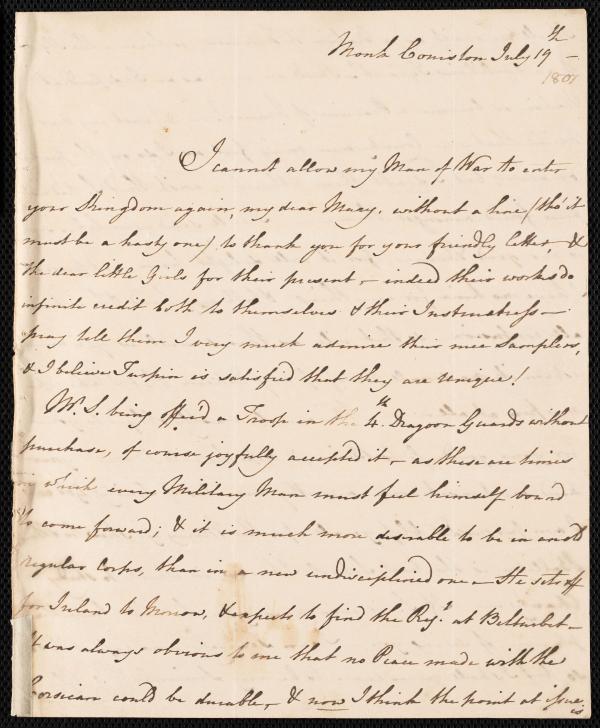 Monk Coniston July 19th –
1807
I cannot allow my Man of War to enter
your Kingdom again, my dear Mary, without a line (tho' it
must be a hasty one) to thank you for your friendly letter, &
the dear little Girls for their present – indeed their works do
infinite credit both to themselves & their Instructress –
pray tell them I very much admire their nice Samplers,
& I believe Turpin is satisfied that they are unique!
Wm. S. being offer'd a Troop in the 4th Dragoon Guards without
purchase, of course joyfully accepted it – as these are times
in which every Military Man must feel himself bound
to come forward; & it is much more desirable to be in an old
regular Corps, than in a new undisciplined one – He sets off
for Ireland to Morrow, & expects to find the Regt. at Belturbet –
It was always obvious to me that no Peace made with the
Corsican could be durable, – & now I think the point at issue
is